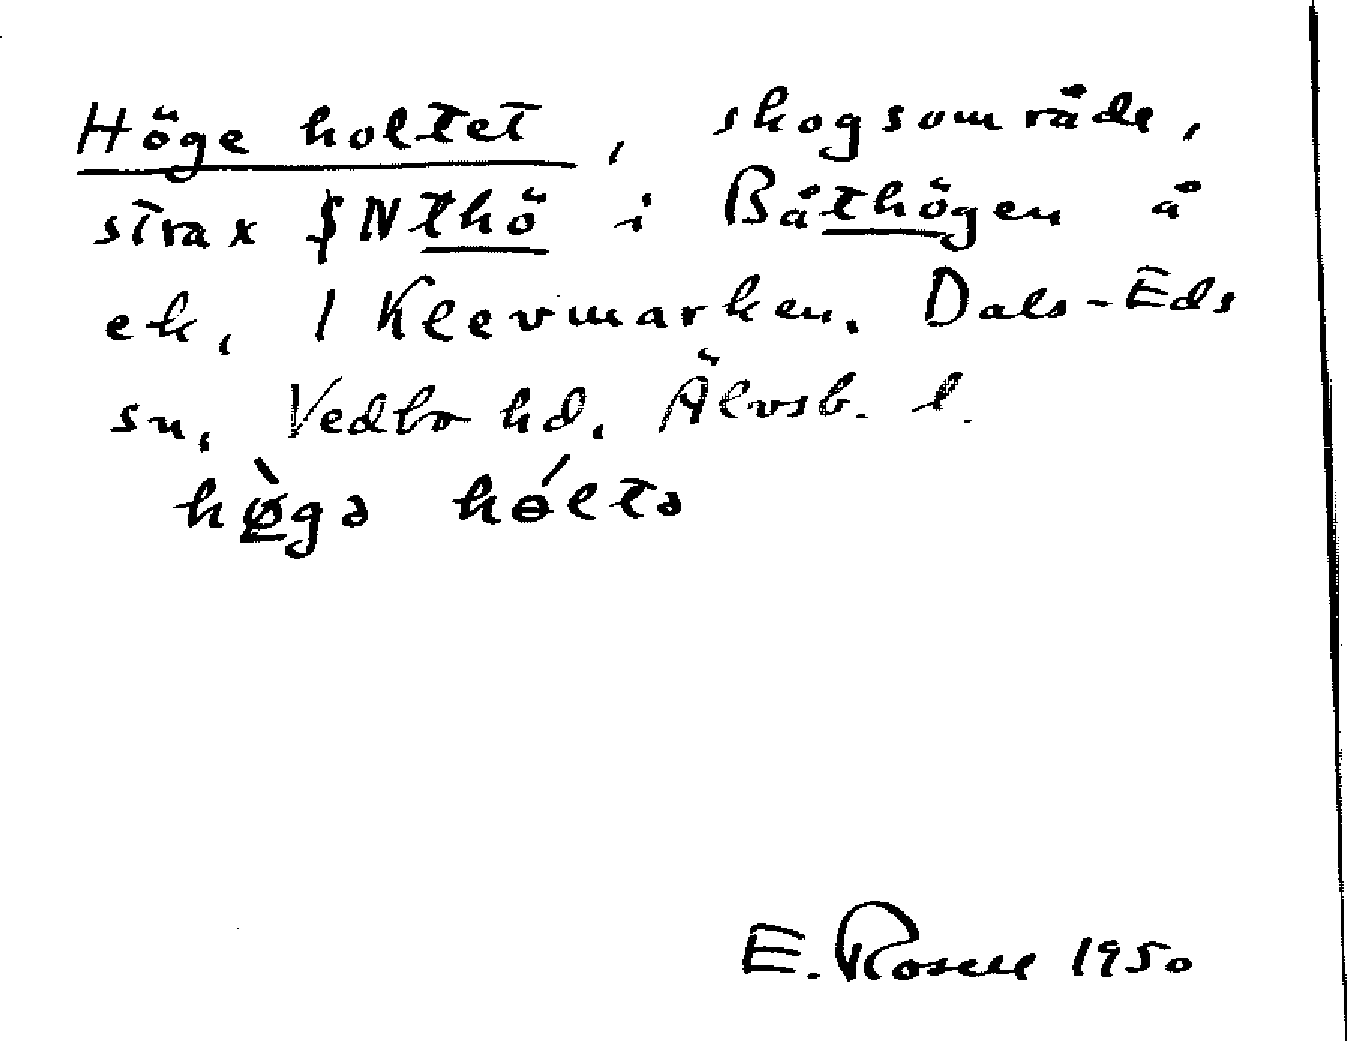 Höge holtet, skogsområde,
strax N thö i Båthögen å
ek, 1 Klevmarken, Dals-Eds
sn, Vedbo hd, Älvsb. l.
hø̀gə hóltə
E. Rosell 1950